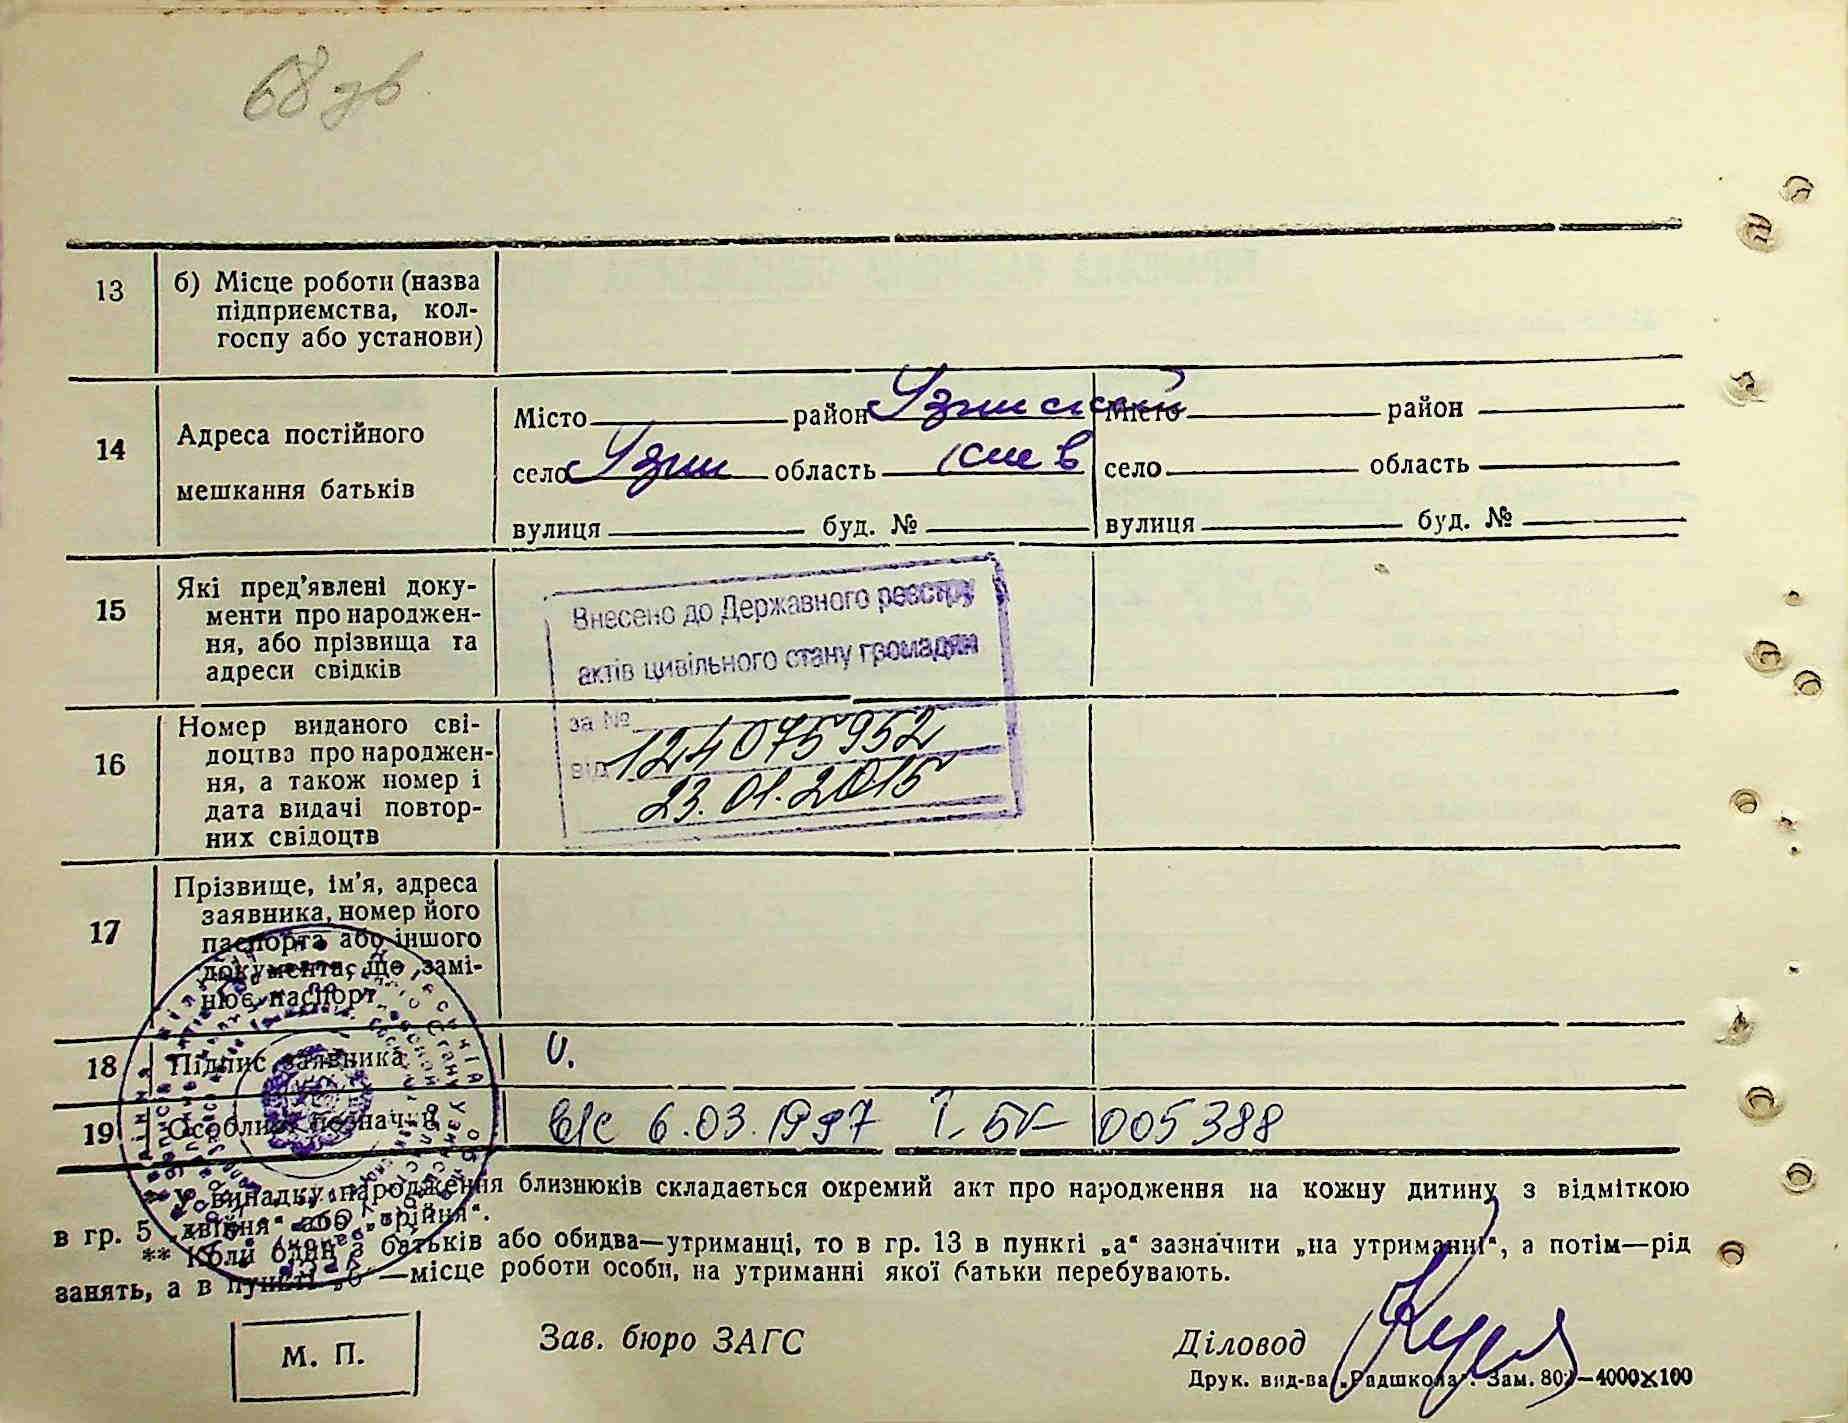 68 зв
13 б) Місце роботи (назва
підприємства, кол-
госпу або установи)
14 Адреса постійного
мешкання батьків
Місто район Узинский Місто район
село Узин область Киев село область
вулиця буд. № вулиця буд. №
15 Які пред'явлені доку-
менти про народжен-
ня, або прізвища та
адреси свідків
Внесено до Державного реєстру
актів цивільного стану громадян
за № 124075952
від 23.01.2015
16 Номер виданого сві-
доцтва про народжен-
ня, а також номер і
дата видачі повтор-
них свідоцтв
17 Прізвище, ім'я, адреса
заявника, номер його
паспорта або іншого
документа, що замі-
нює паспорт
18 Підпис заявника
19 Особливі позначки в/с 6.03.1997 I-БК 005388
* У випадку народження близнюків складається окремий акт про народження на кожну дитину з відміткою
в гр. 5 „двійня“ або „трійня“.
** Коли один з батьків або обидва—утриманці, то в гр. 13 в пункті „а“ зазначити „на утриманні“, а потім—рід
занять, а в пункті „б“—місце роботи особи, на утриманні якої батьки перебувають.
М. П. Зав. бюро ЗАГС Діловод
Друк. вид-ва „Радшкола“. Зам. 80 —4000×100